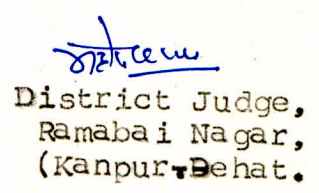 District Judge,
Ramabai Nagar,
(Kanpur-Dehat.